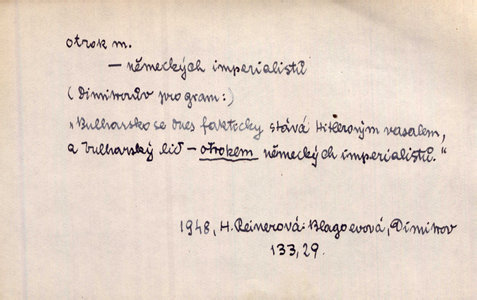 otrok m.
— německých imperialistů
(Dimitrovův program:)
„Bulharsko se dnes fakticky stává Hitlerovým vasalem,
a bulharský lid – otrokem německých imperialistů."
1948, H. Reinerová: Blagoevová, Dimitrov
133,29.